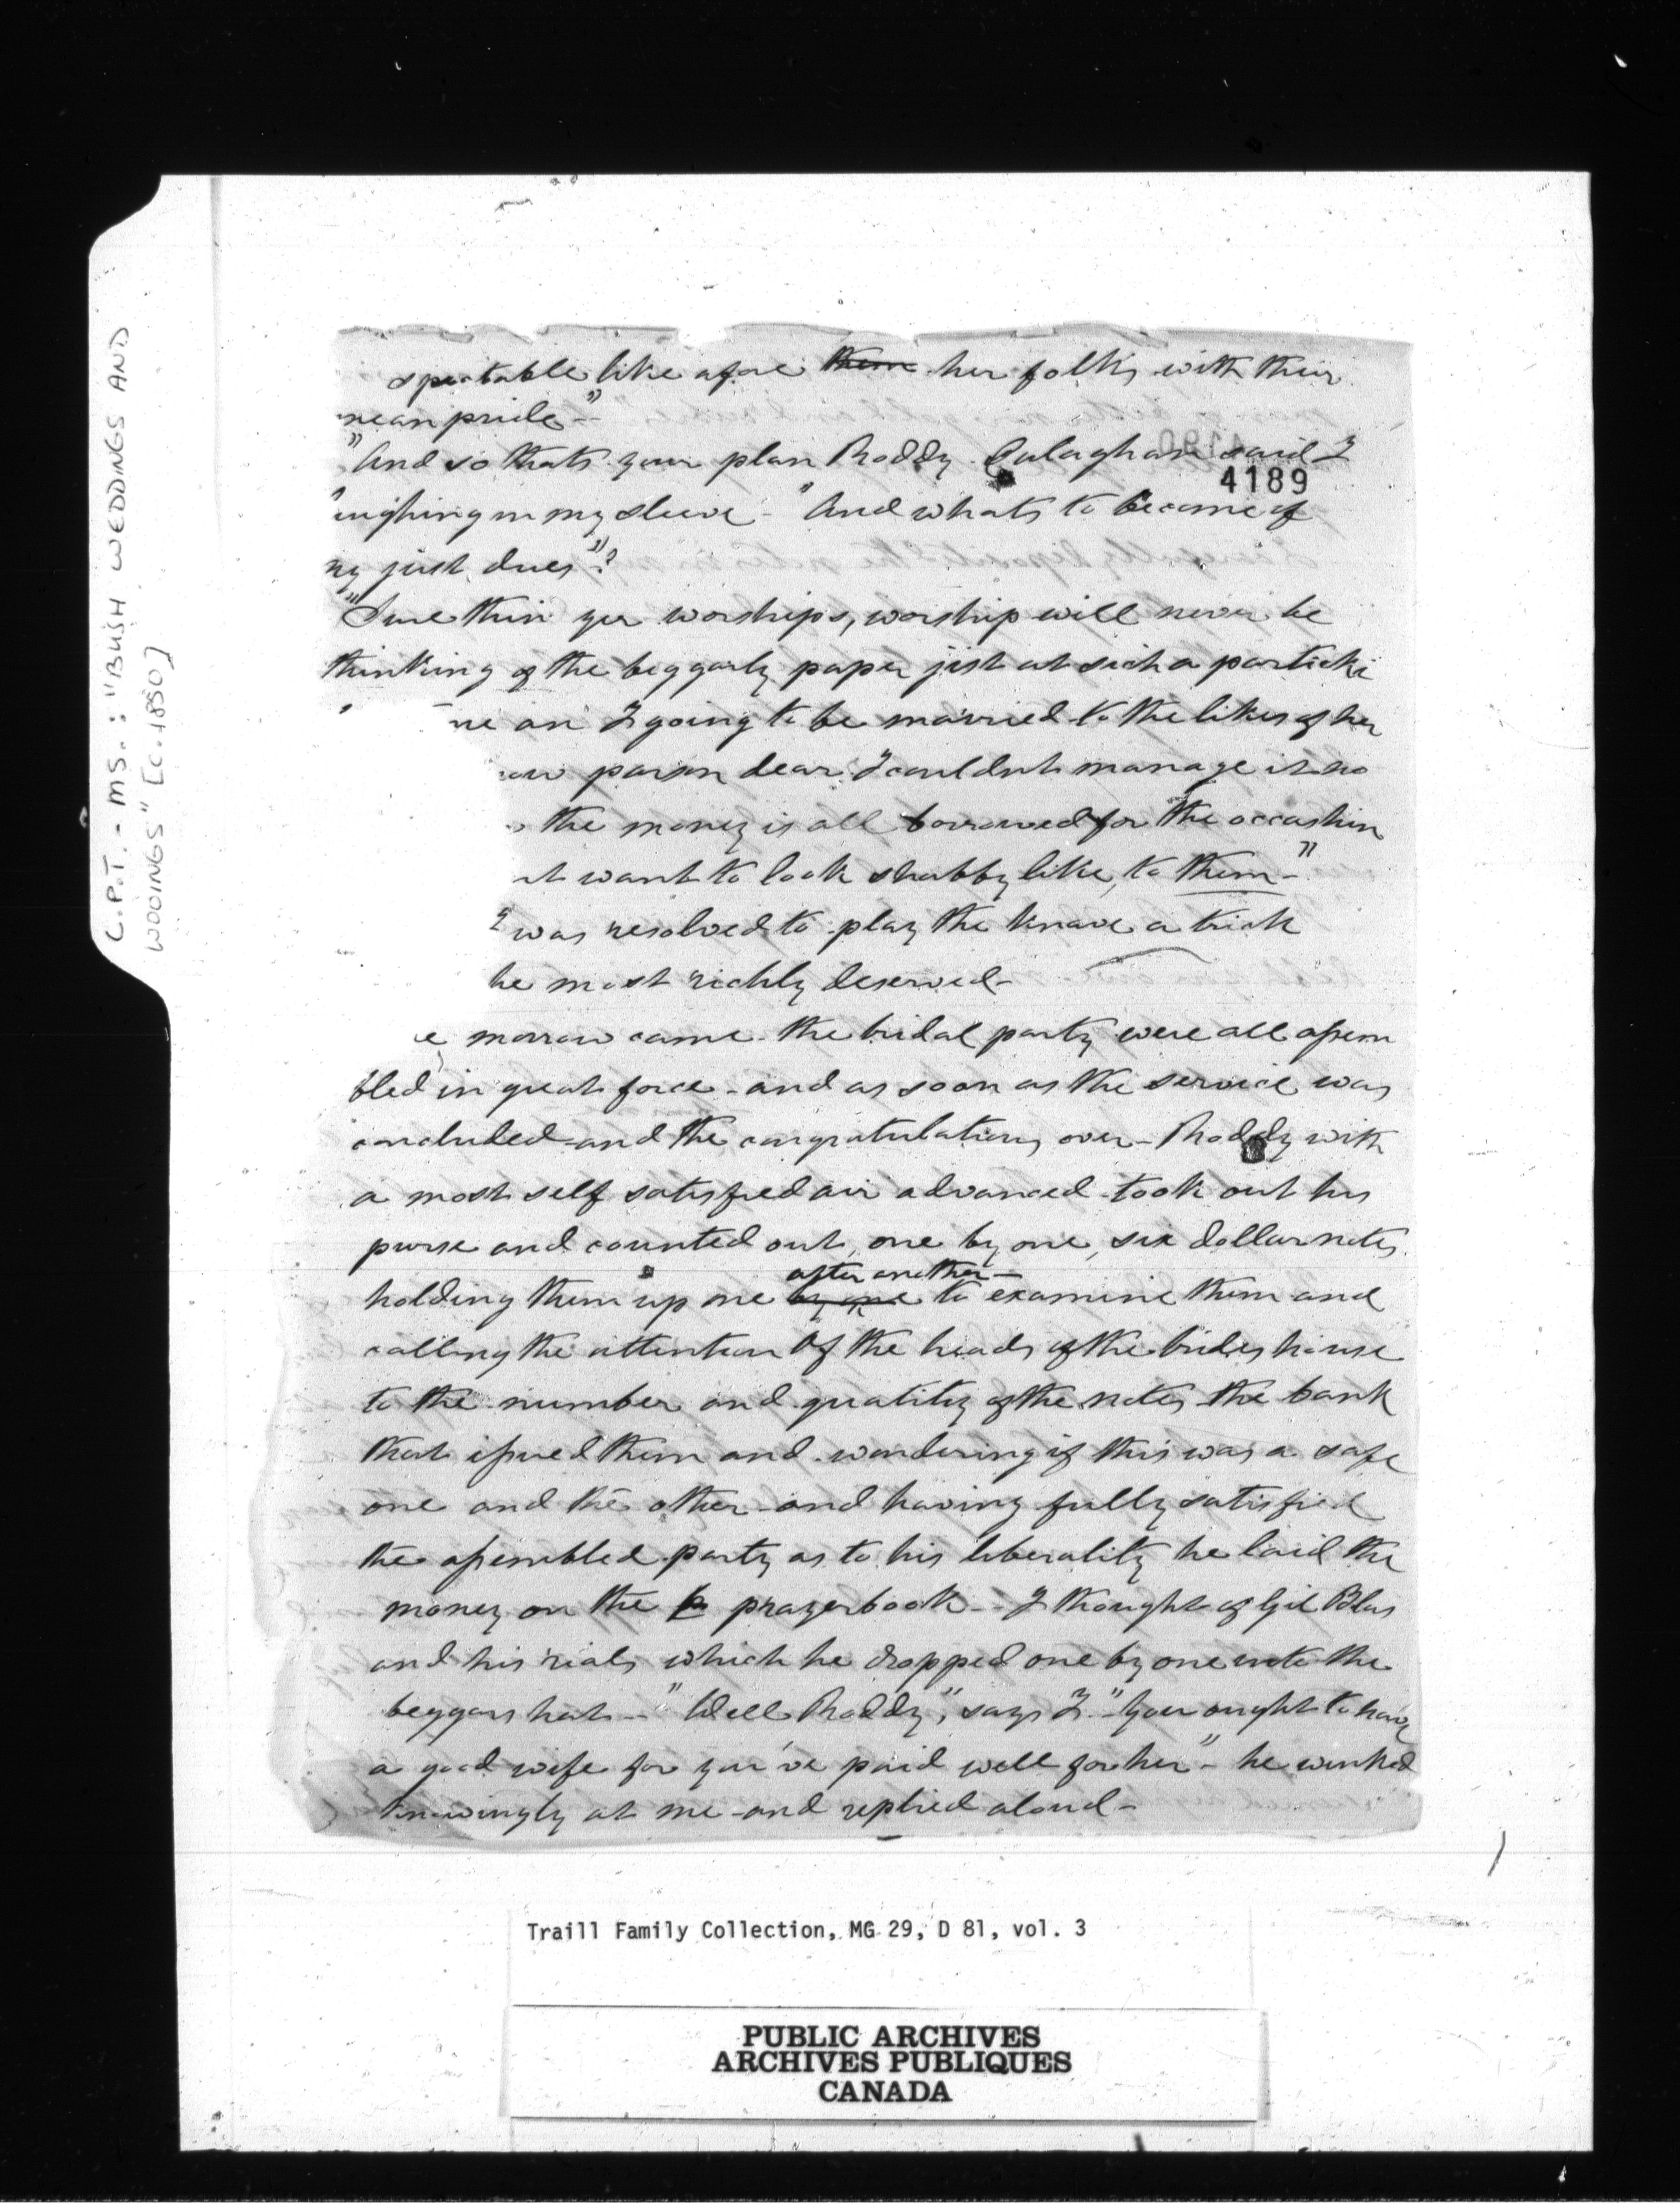 C.P.T. - MS.: "BUSH WEDDINGS AND
WOOINGS" [c. 1850]
spectable like afore them her folks with their
mean pride -"
"And so thats your plan Roddy Calaghan said I
4189
aughing in my sleeve - "And whats to become of
my just dues"?
"Sure thin yer worships, worship will never be
thinking of the beggarly paper jist at sich a partickl
me an I going to be married to the likes of her
parson dear I couldnt manage it no
the money is all borrowed for the occashin
nt want to look shabby like, to them -"
I was resolved to play the knave a trick
he most richly deserved -
e morrow came - the bridal party were all assem
bled in great force - and as soon as the service was
concluded and the congratulations over - Roddy with
a most self satisfied air advanced took out his
purse and counted out, one by one, six dollar notes
after another -
holding them up one by one to examine them and
calling the attention Of the heads of the brides house
to the number and quality of the notes the bank
that issued them and wondering if this was a safe
one and the other - and having fully satisfied
the assembled party as to his liberality he laid the
money on the p prayerbook - I thought of Gil Blas
and his rials which he dropped one by one into the
beggars hat - "Well Roddy", says I "you ought to have
a good wife for you've paid well for her" - he winked
knowingly at me - and replied aloud -
Traill Family Collection, MG 29, D 81, vol. 3
PUBLIC ARCHIVES
ARCHIVES PUBLIQUES
CANADA